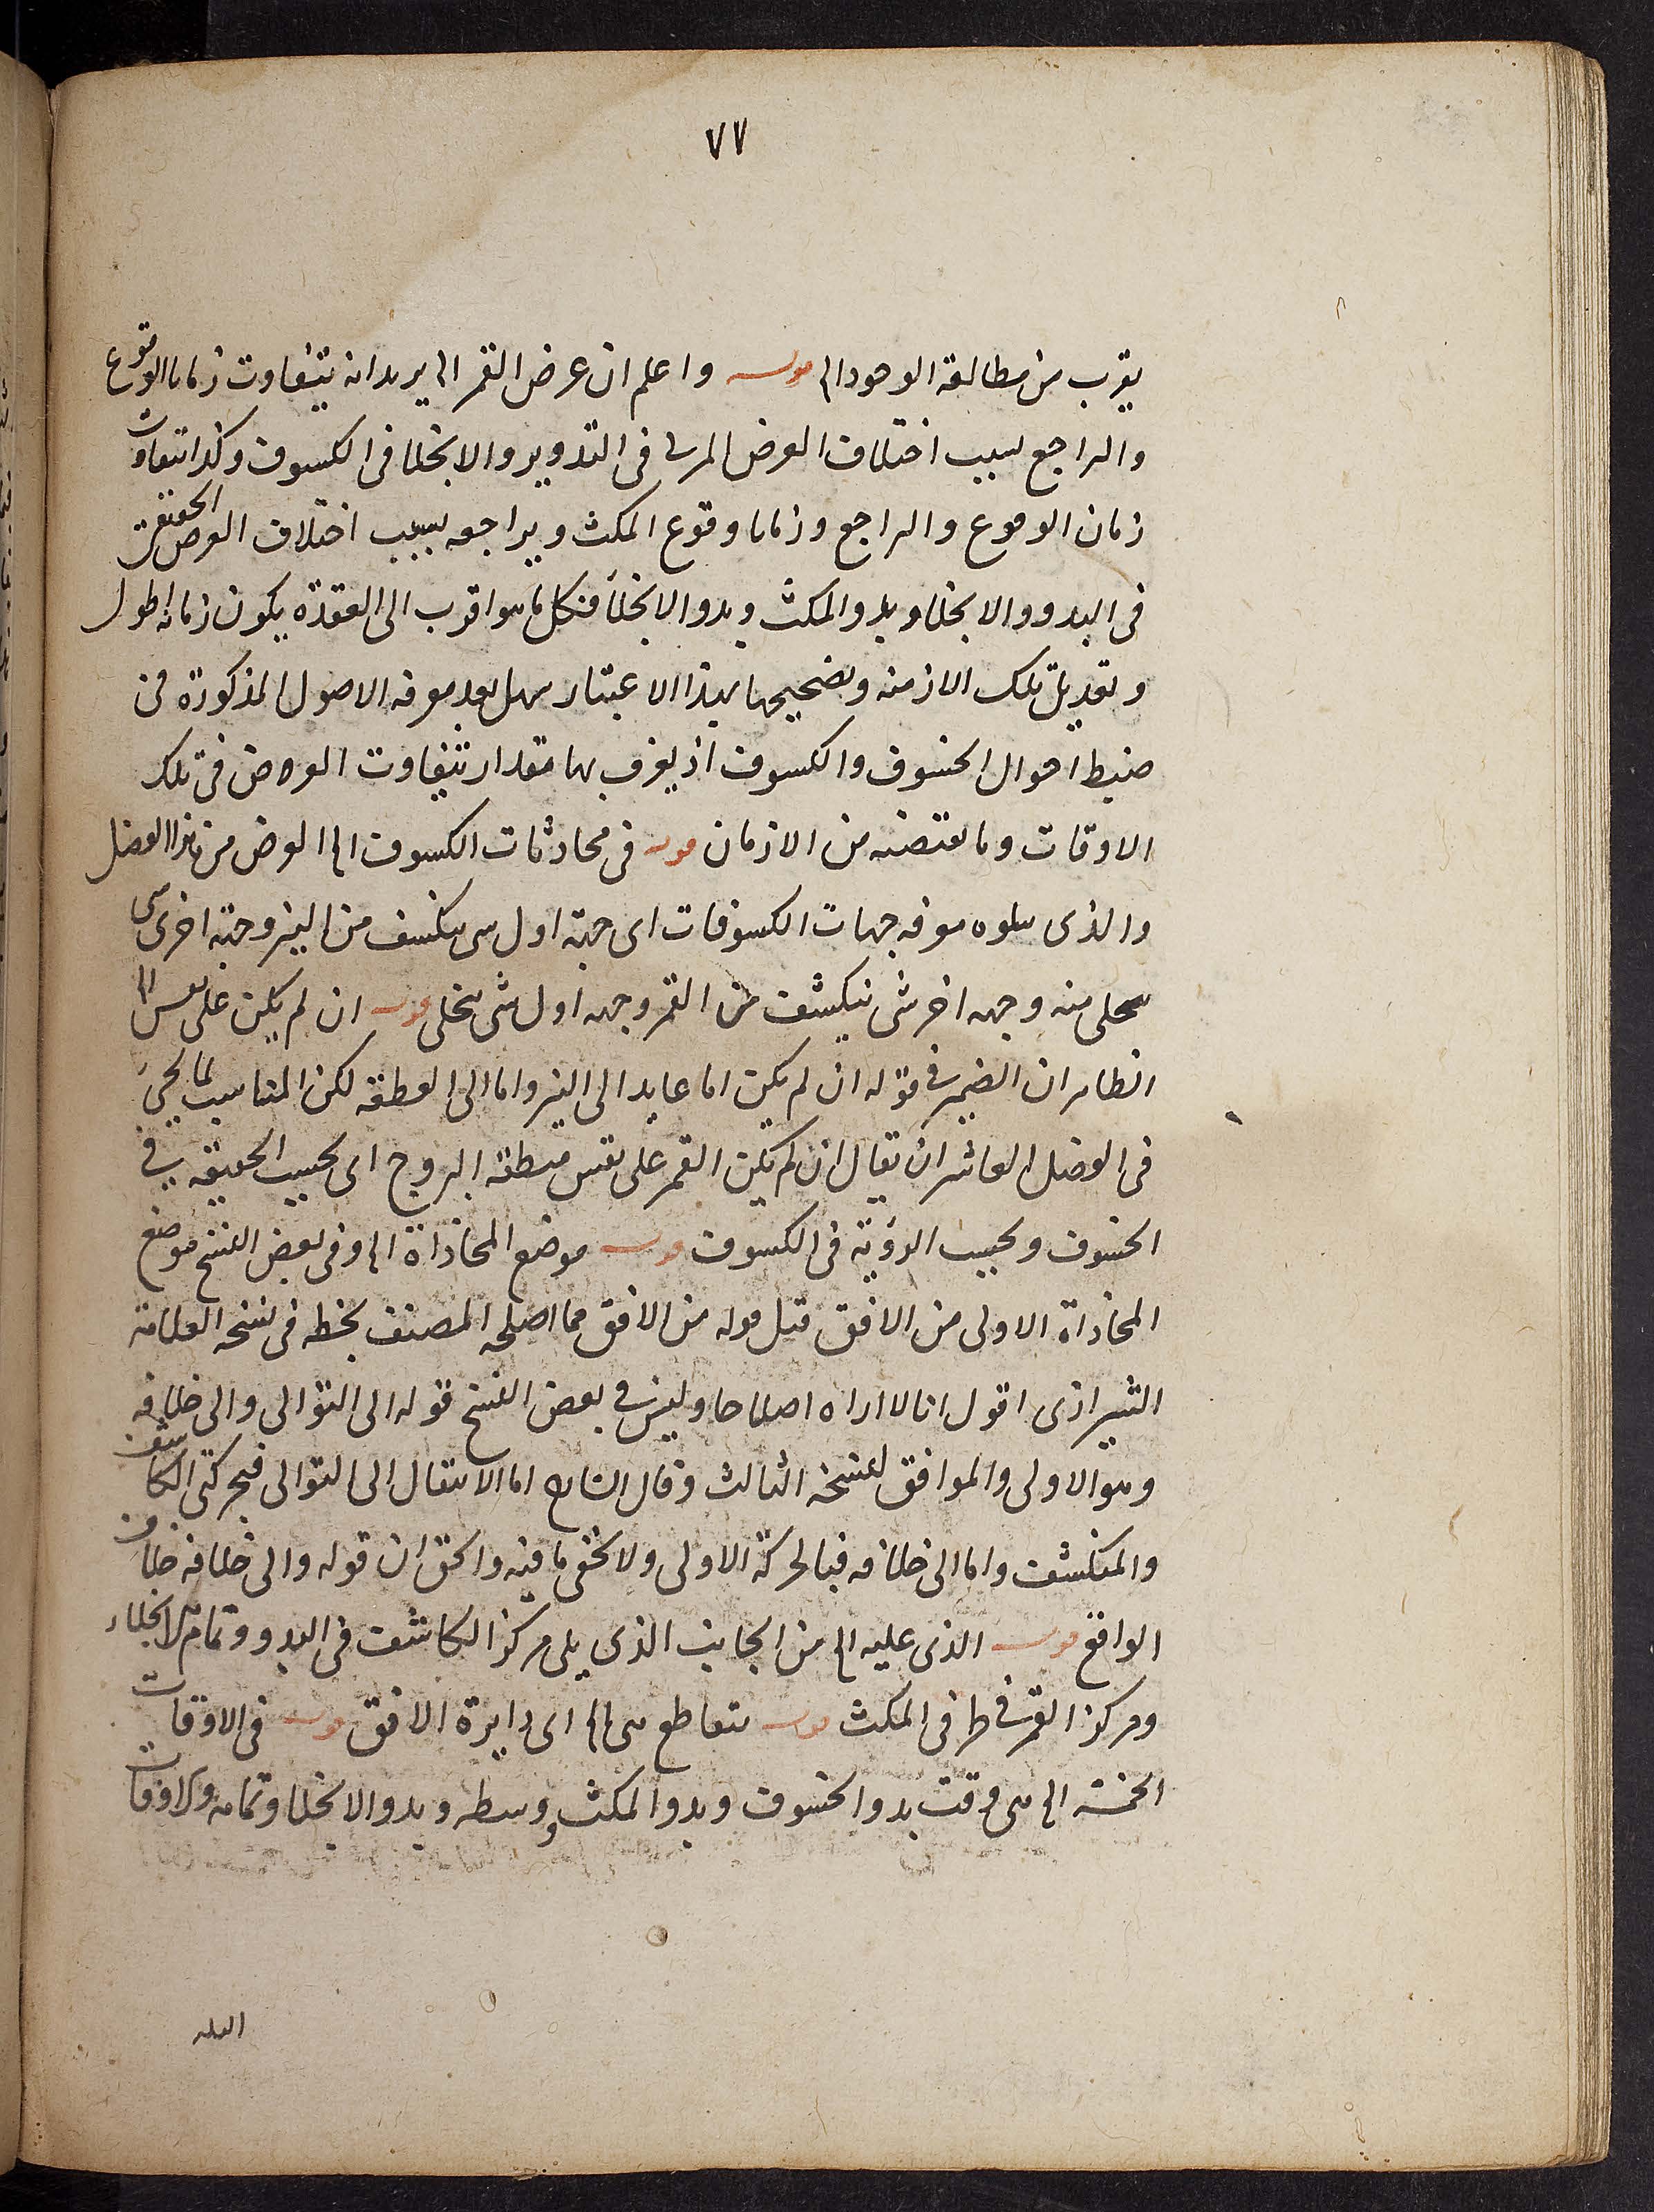 ٧٧
يقرب من مطالعة الوجود الخ قوله واعلم ان عرض القمر الخ يريد انه يتفاوت زمانا الوقوع
والتراجع بسبب اختلاف العرض المرى فى التدوير والانجلا فى الكسوف وكذا يتفاوت
زمان الوقوع والتراجع وزمانا وقوع المكث وتراجعه بسبب اختلاف العرض الحقيقى
فى البدو والانجلا وبدو المكث وبدو الانجلا فكل ما هو اقرب الى العقدة يكون زمانه اطول
وتعديل تلك الازمنه وتصحيحها بهذا الاعتبار سهل بعد معرفه الاصول المذكورة فى
ضبط احوال الخسوف والكسوف اذ يعرف بها مقدار تتفاوت العروض فى تلك
الاوقات وما تقتضيه من الازمان قوله فى محاذثات الكسوف الخ الغرض من هذا الفصل
والذى يتلوه معرفه جهات الكسوفات اى جهة اول شى ينكسف من النير وجهة اخر شى
ينجلى منه وجهه اخر شى ينكشف من القمر وجهه اول شى ينجلى قوله ان لم يكن على نفس الخ
الظاهر ان الضمير فى قوله ان لم يكن اما عايد الى النير واما الى القطعه لكن المناسب لما يجىء
فى الفصل العاشر ان يقال ان لم يكن القمر على نفس منطقة البروج اى بحسب الحقيقه فى
الخسوف وبحسب الرؤية فى الكسوف قوله موضع المحاذاة الخ وفى بعض النسخ موضع
المحاذاة الاولى من الافق قبل قوله من الافق مما اصلحه المصنف بخطه فى نسخه العلامة
الشيرازى اقول انا لا اراه اصلاحا وليس فى بعض النسخ قوله الى التوالى والى خلافه
وهو الاولى والموافق لنسخه الثالث وقال الشارح اما الانتقال الى التوالى فبحركتى الكاشف
والمنكشف واما الى خلافه فبالحركة الاولى ولا يخفى ما فيه والحق ان قوله والى خلافه خلاف
الواقع قوله الذى عليه الخ من الجانب الذى يلى مركز الكاشف فى البدو وتمام الانجلاء
ومركز القمر فى طرفى المكث قوله تتقاطع هى الخ اى دايرة الافق قوله فى الاوقات
الخمسة الخ هى وقت بدو الخسوف وبدو المكث ووسطه وبدو الانجلا وتمامه والاوقات